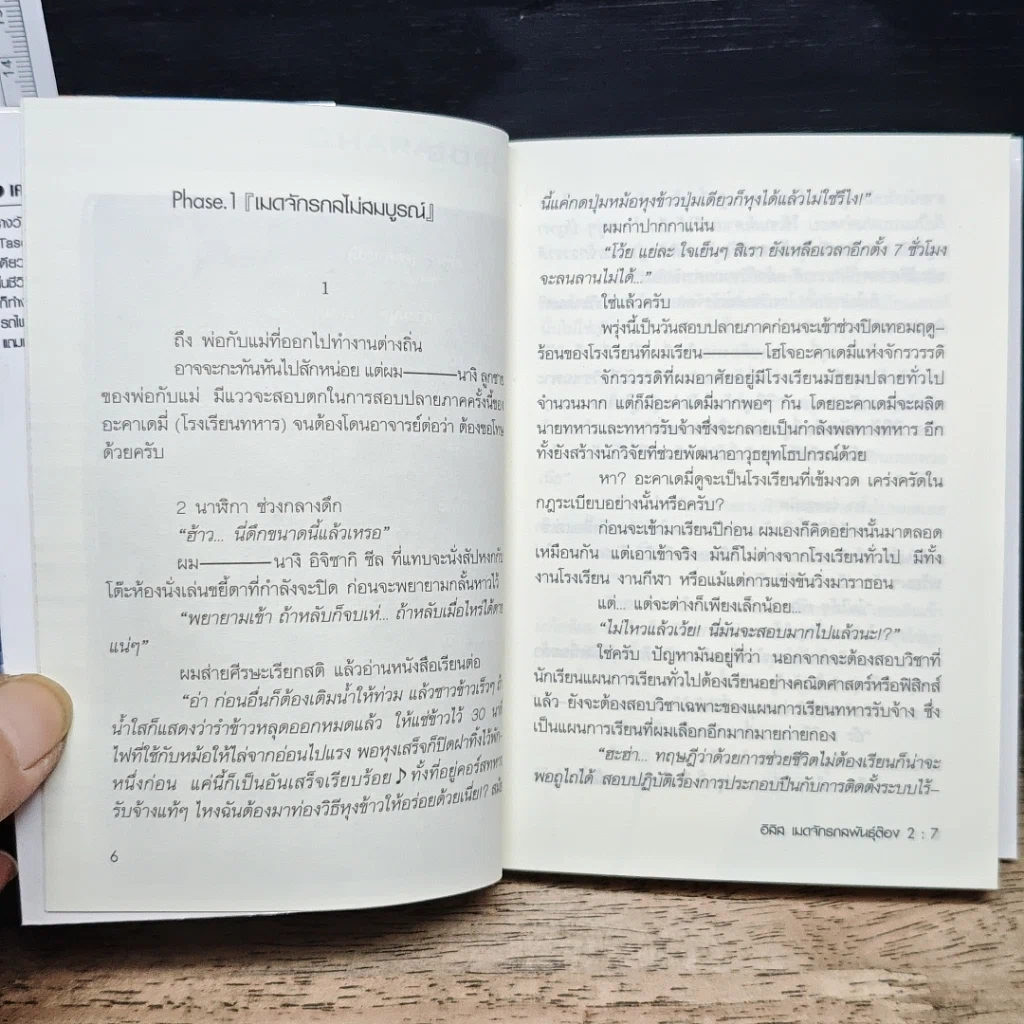 Phase.1 『เมดจักรกลไม่สมบูรณ์』
1
ถึง พ่อกับแม่ที่ออกไปทำงานต่างถิ่น
อาจจะกะทันหันไปสักหน่อย แต่ผม———นางิ ลูกชาย
ของพ่อกับแม่ มีแววจะสอบตกในการสอบปลายภาคครั้งนี้ของ
อะคาเดมี่ (โรงเรียนทหาร) จนต้องโดนอาจารย์ต่อว่า ต้องขอโทษ
ด้วยครับ
2 นาฬิกา ช่วงกลางดึก
“ฮ้าว... นี่ดึกขนาดนี้แล้วเหรอ”
ผม———นางิ อิจิซากิ ชีล ที่แทบจะนั่งสัปหงกกับ
โต๊ะห้องนั่งเล่นขยี้ตาที่กำลังจะปิด ก่อนจะพยายามกลั้นหาวไว้
“พยายามเข้า ถ้าหลับก็จบเห่... ถ้าหลับเมื่อไหร่ได้ตาย
แน่ๆ”
ผมส่ายศีรษะเรียกสติ แล้วอ่านหนังสือเรียนต่อ
“อ่า ก่อนอื่นก็ต้องเติมน้ำให้ท่วม แล้วซาวข้าวเร็วๆ ถ้า
น้ำใสก็แสดงว่ารำข้าวหลุดออกหมดแล้ว ให้แช่ข้าวไว้ 30 นาที
ไฟที่ใช้กับหม้อให้ไล่จากอ่อนไปแรง พอหุงเสร็จก็ปิดฝาทิ้งไว้พัก–
หนึ่งก่อน แค่นี้ก็เป็นอันเสร็จเรียบร้อย♪ ทั้งที่อยู่คอร์สทหาร
รับจ้างแท้ๆ ไหงฉันต้องมาท่องวิธีหุงข้าวให้อร่อยด้วยเนี่ย!?
6
นี้แค่กดปุ่มหม้อหุงข้าวปุ่มเดียวก็หุงได้แล้วไม่ใช่รึไง!”
ผมกำปากกาแน่น
“โว้ย แย่ละ ใจเย็นๆ สิเรา ยังเหลือเวลาอีกตั้ง 7 ชั่วโมง
จะลนลานไม่ได้...”
ใช่แล้วครับ
พรุ่งนี้เป็นวันสอบปลายภาคก่อนจะเข้าช่วงปิดเทอมฤดู–
ร้อนของโรงเรียนที่ผมเรียน———โฮโจอะคาเดมี่แห่งจักรวรรดิ
จักรวรรดิที่ผมอาศัยอยู่มีโรงเรียนมัธยมปลายทั่วไป
จำนวนมาก แต่ก็มีอะคาเดมี่มากพอๆ กัน โดยอะคาเดมี่จะผลิต
นายทหารและทหารรับจ้างซึ่งจะกลายเป็นกำลังพลทางทหาร อีก
ทั้งยังสร้างนักวิจัยที่ช่วยพัฒนาอาวุธยุทโธปกรณ์ด้วย
หา? อะคาเดมี่ดูจะเป็นโรงเรียนที่เข้มงวด เคร่งครัดใน
กฎระเบียบอย่างนั้นหรือครับ?
ก่อนจะเข้ามาเรียนปีก่อน ผมเองก็คิดอย่างนั้นมาตลอด
เหมือนกัน แต่เอาเข้าจริง มันก็ไม่ต่างจากโรงเรียนทั่วไป มีทั้ง
งานโรงเรียน งานกีฬา หรือแม้แต่การแข่งขันวิ่งมาราธอน
แต่... แต่จะต่างก็เพียงเล็กน้อย...
“ไม่ไหวแล้วเว้ย! นี่มันจะสอบมากไปแล้วนะ!?”
ใช่ครับ ปัญหามันอยู่ที่ว่า นอกจากจะต้องสอบวิชาที่
นักเรียนแผนการเรียนทั่วไปต้องเรียนอย่างคณิตศาสตร์หรือฟิสิกส์
แล้ว ยังจะต้องสอบวิชาเฉพาะของแผนการเรียนทหารรับจ้าง ซึ่ง
เป็นแผนการเรียนที่ผมเลือกอีกมากมายก่ายกอง
“ฮะฮ่า... ทฤษฎีว่าด้วยการช่วยชีวิตไม่ต้องเรียนก็น่าจะ
พอถูไถได้ สอบปฏิบัติเรื่องการประกอบปืนกับการติดตั้งระบบไร้–
อิลิส เมดจักรกลพันธุ์ต๊อง 2 : 7